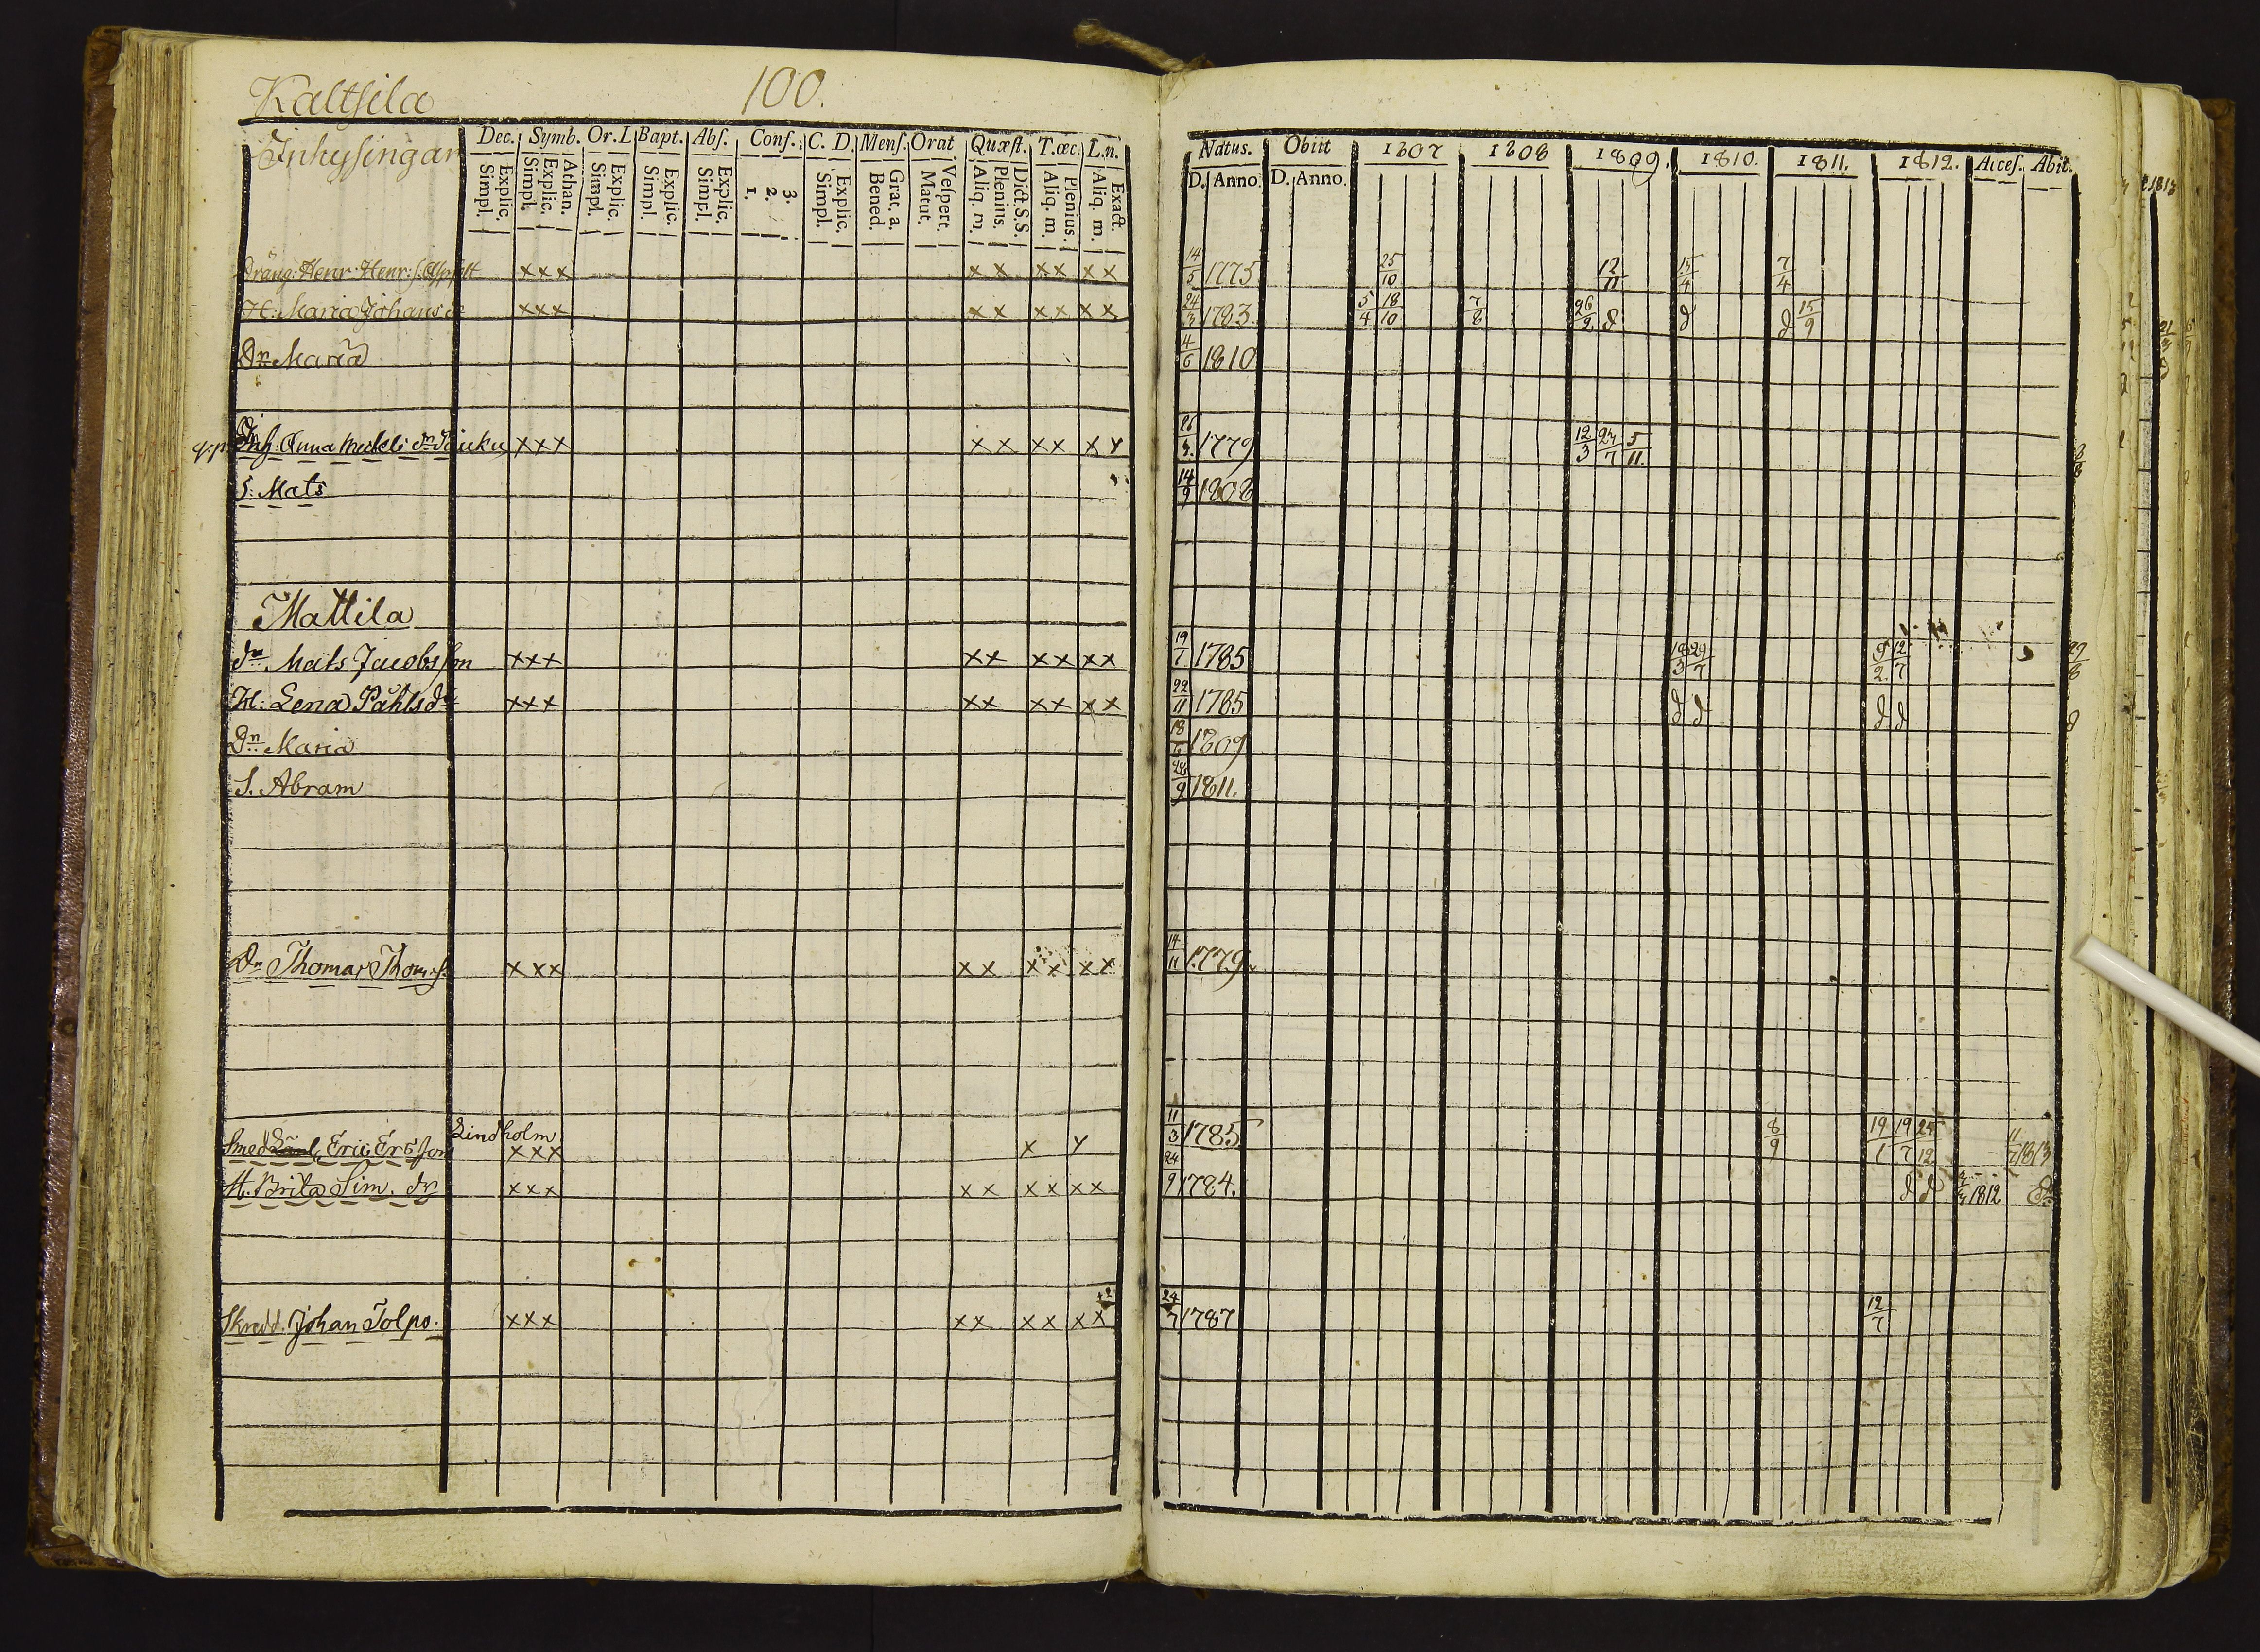 Kaltsila 100.
Inhysingar Dec. Symb. Or. L Bapt. Abs. Conf. C. D. Mens. Orat Quæst. T. œc. L. n.
Explic. Simpl. Athan. Explic. Simpl. Explic. Simpl. Explic. Simpl. Explic. Simpl. 3. 2. 1. Explic. Simpl. Grat. a. Bened. Vespert. Matut. Dict S.S. Plenius. Aliq. m. Plenius. Aliq. m. Exact. Aliq. m.
Natus. Obiit 1807 1808 1809. 1810. 1811. 1812. Acces. Abit.
D. Anno D. Anno.
Dräng: Henr Henr: s. xxx xx xx xx 14/5 1775 25/10 12/11 15/4 7/4
H: Maria Johans d xxx xx xx xx 24/3 1783. 5/4 18/10 7/8 26/2 d d d 15/9
Dr Maria 4/6 1810
Inh: Anna Michels dr xxx xx xx xx 26/3. 1779 12/3 24/7 5/11.
S: Mats 14/9 1808
Mattila
dr. Mats Jacobsson xxx xx xx xx 19/7 1785 18/3 29/7 9/2 12/7 29/8
H: Lena Påhls dr xxx xx xx xx 22/11 1785 d d d d d
Dr Maria 18/6 1809
S. Abram 28/9 1811.
Dr Thomas Thom. s. xxx xx xx xx 14/11 1779.
Lindholm
Smed Eric Ersson xxx x y 11/3 1785 8/9 19/1 19/7 25/12 11/7 1813
H. Brita Sim. dr xxx xx xx xx 24/9 1784. d d 1812 do
Skredd. Johan Tolpo. xxx xx xx xx 24/7 1787 12/7
1813